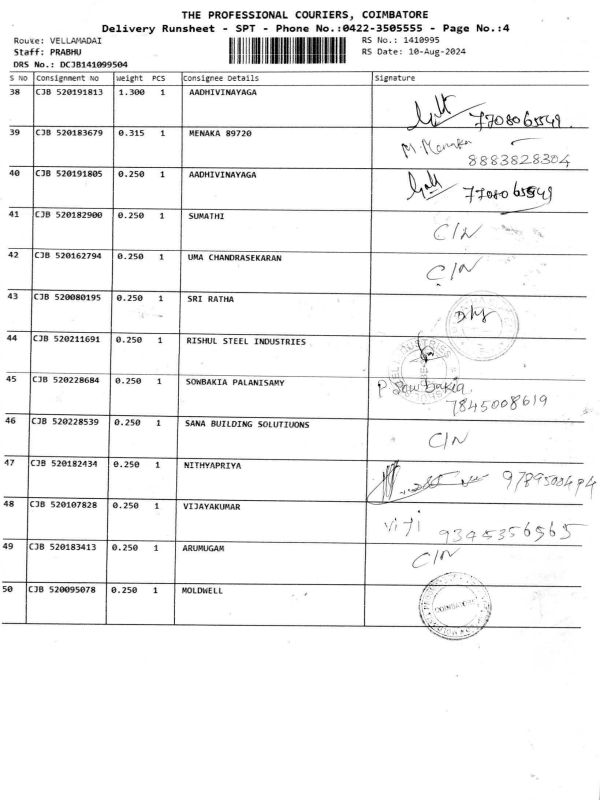 THE PROFESSIONAL COURIERS, COIMBATORE
Delivery Runsheet - SPT - Phone No.:0422-3505555 - Page No.:4
Route: VELLAMADAI RS No.: 1410995
Staff: PRABHU RS Date: 10-Aug-2024
DRS No.: DCJB141099504
S NO Consignment No Weight PCS Consignee Details Signature
38 CJB 520191813 1.300 1 AADHIVINAYAGA 7708065549.
39 CJB 520183679 0.315 1 MENAKA 89720 M. Menaka 8883828304
40 CJB 520191805 0.250 1 AADHIVINAYAGA 7708065549
41 CJB 520182900 0.250 1 SUMATHI C/N
42 CJB 520162794 0.250 1 UMA CHANDRASEKARAN C/N
43 CJB 520080195 0.250 1 SRI RATHA
44 CJB 520211691 0.250 1 RISHUL STEEL INDUSTRIES
45 CJB 520228684 0.250 1 SOWBAKIA PALANISAMY P. Sowbakia 7845008619
46 CJB 520228539 0.250 1 SANA BUILDING SOLUTIUONS C/N
47 CJB 520182434 0.250 1 NITHYAPRIYA
48 CJB 520107828 0.250 1 VIJAYAKUMAR Viji 9345356565
49 CJB 520183413 0.250 1 ARUMUGAM C/N
50 CJB 520095078 0.250 1 MOLDWELL COIMBATORE